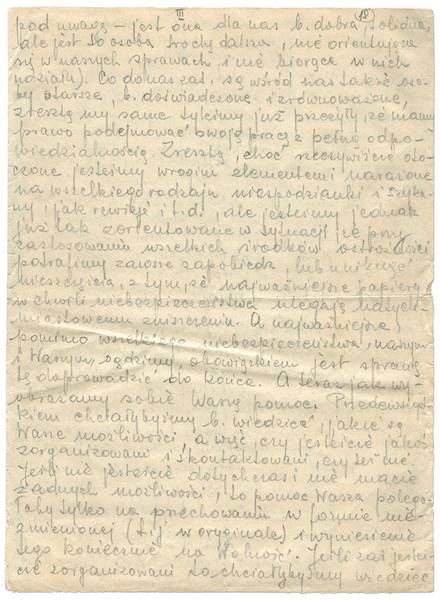 III
18
pod uwagę – jest ona dla nas b. dobra, solidna,
ale jest to osoba trochę dalsza, nie orientująca
się w naszych sprawach i nie biorąca w nich
udziału). Co do nas zaś, są wśród nas także oso-
by starsze, b. doświadczone i zrównoważone,
zresztą my same tyleśmy już przeżyły, że mamy
prawo podejmować swoją pracę z pełną odpo-
wiedzialnością. Zresztą, choć rzeczywiście oto-
czone jesteśmy wrogim elementem i narażone
na wszelkiego rodzaju niespodzianki i szyka-
ny, jak rewizje i t.d., ale jesteśmy jednak
już tak zorientowane w sytuacji, że przy
zastosowaniu wszelkich środków ostrożności
potrafimy zawsze zapobiedz, lub uniknąć
nieszczęścia, z tym, że najważniejsze papiery
w chwili niebezpieczeństwa ulegają natych-
miastowemu zniszczeniu. A najważniejsze,
pomimo wszelkiego niebezpieczeństwa, naszym
i Waszym, sądzimy, obowiązkiem jest sprawę
tę doprowadzić do końca. A teraz jak wy-
obrażamy sobie Waszą pomoc. Przedewszyst-
kiem chciałybyśmy b. wiedzieć, jakie są
Wasze możliwości, a więc, czy jesteście jakoś
zorganizowani i skontaktowani, czy też nie.
Jeśli nie jesteście dotychczas i nie macie
żadnych możliwości, to pomoc Wasza polega-
łaby tylko na przechowaniu w formie nie-
zmienionej (t.j. w oryginale) i wyniesieniu
tego koniecznie na Wolność. Jeśli zaś jeste-
ście zorganizowani to chciałybyśmy wiedzieć